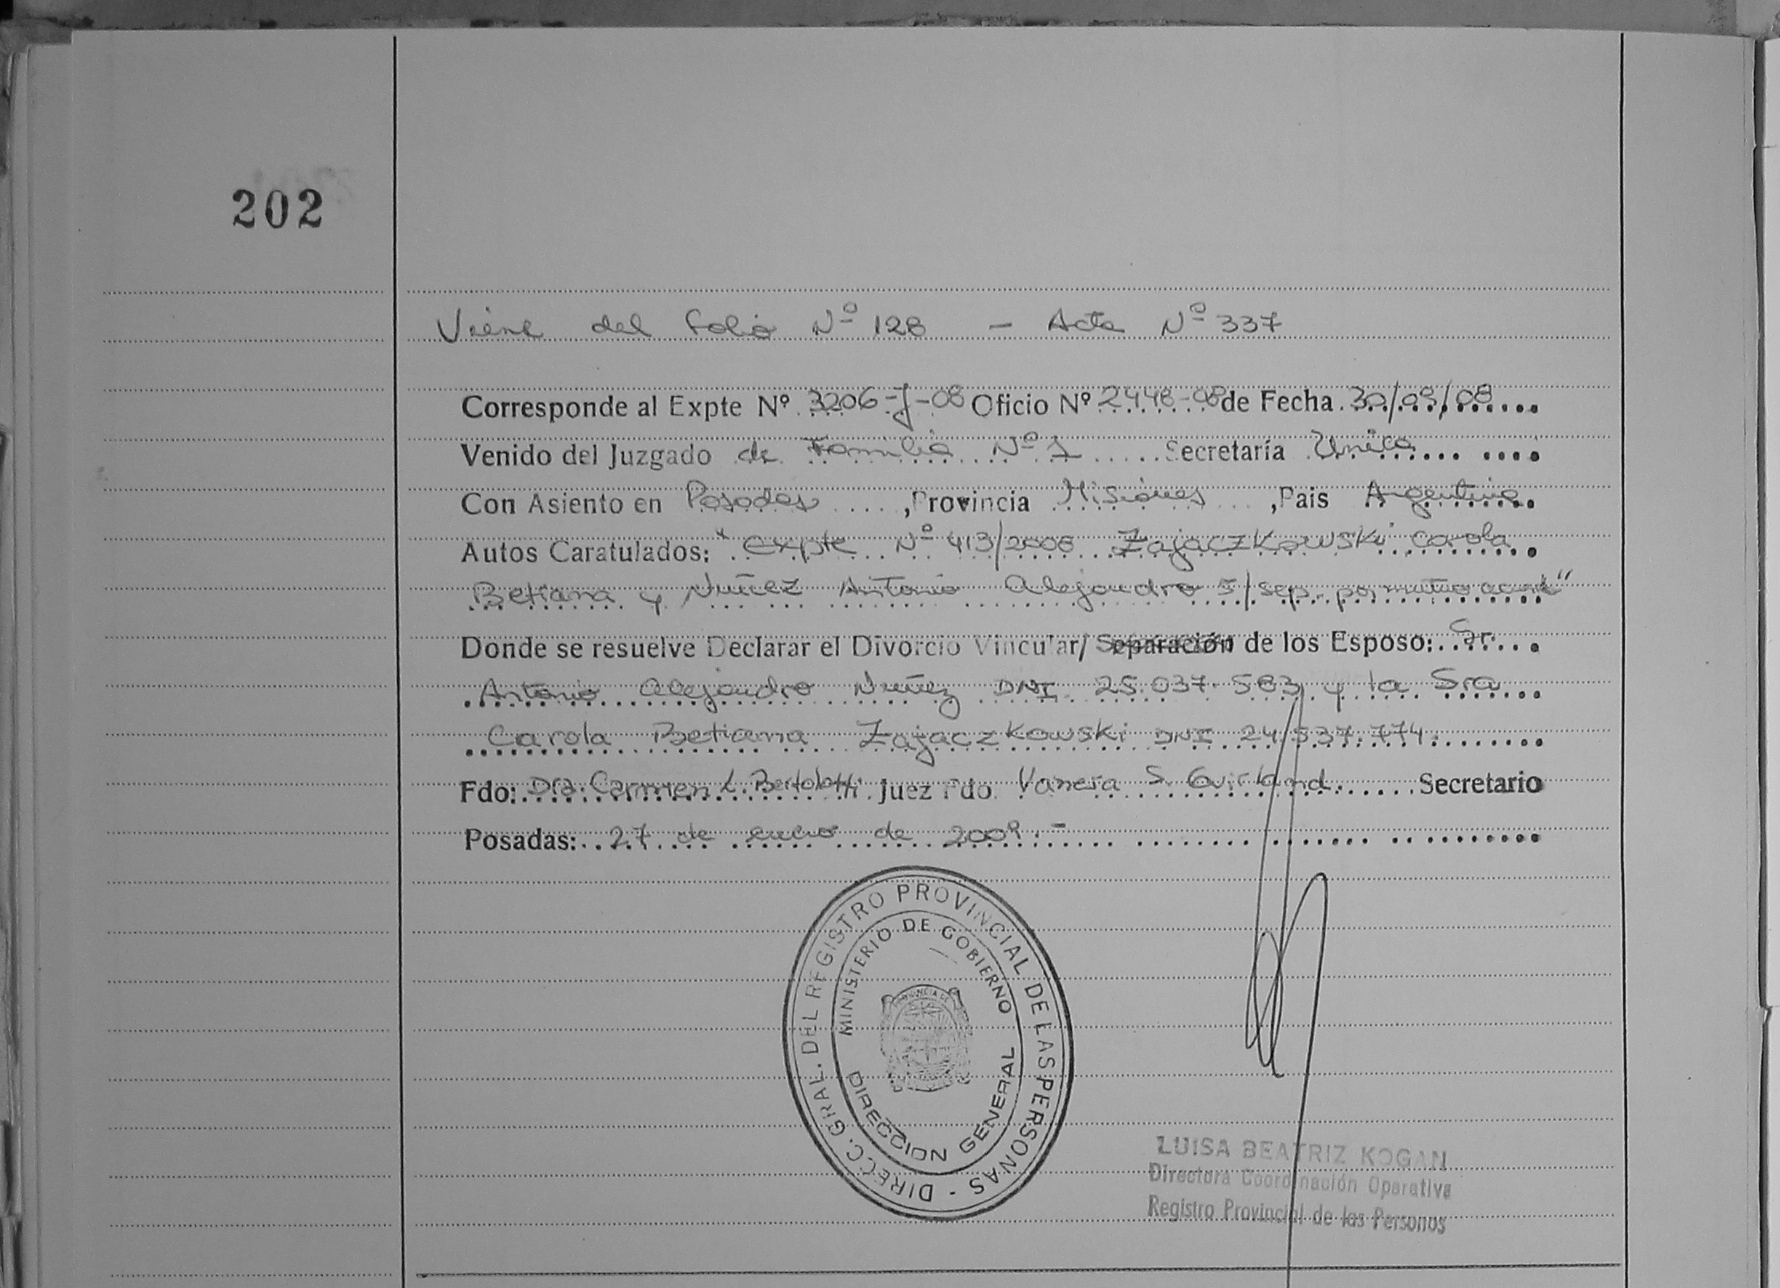 202
Viene del folio Nº 128 – Acta Nº 337
Corresponde al Expte Nº 3206-J-08 Oficio Nº 2448-08 de Fecha 30/09/08
Venido del Juzgado de Familia Nº 1 Secretaría Unica
Con Asiento en Posadas, Provincia Misiones, Pais Argentina
Autos Caratulados: "Expte Nº 413/2006 Zajaczkowski Carola
Betiana y Nuñez Antonio Alejandro s/sep. por mutuo acord"
Donde se resuelve Declarar el Divorcio Vincular/ Separación de los Esposo: Sr.
Antonio Alejandro Nuñez DNI 25.037.583 y la Sra
Carola Betiana Zajaczkowski DNI 24.537.774.
Fdo: Dra. Carmen L. Bertolotti Juez Fdo Vanesa S. Guirland. Secretario
Posadas: 27 de enero de 2009.-
DIRECC. GRAL. DEL REGISTRO PROVINCIAL DE LAS PERSONAS -
MINISTERIO DE GOBIERNO
PROVINCIA DE
DIRECCION GENERAL
LUISA BEATRIZ KOGAN
Directora Coordinación Operativa
Registro Provincial de las Personas